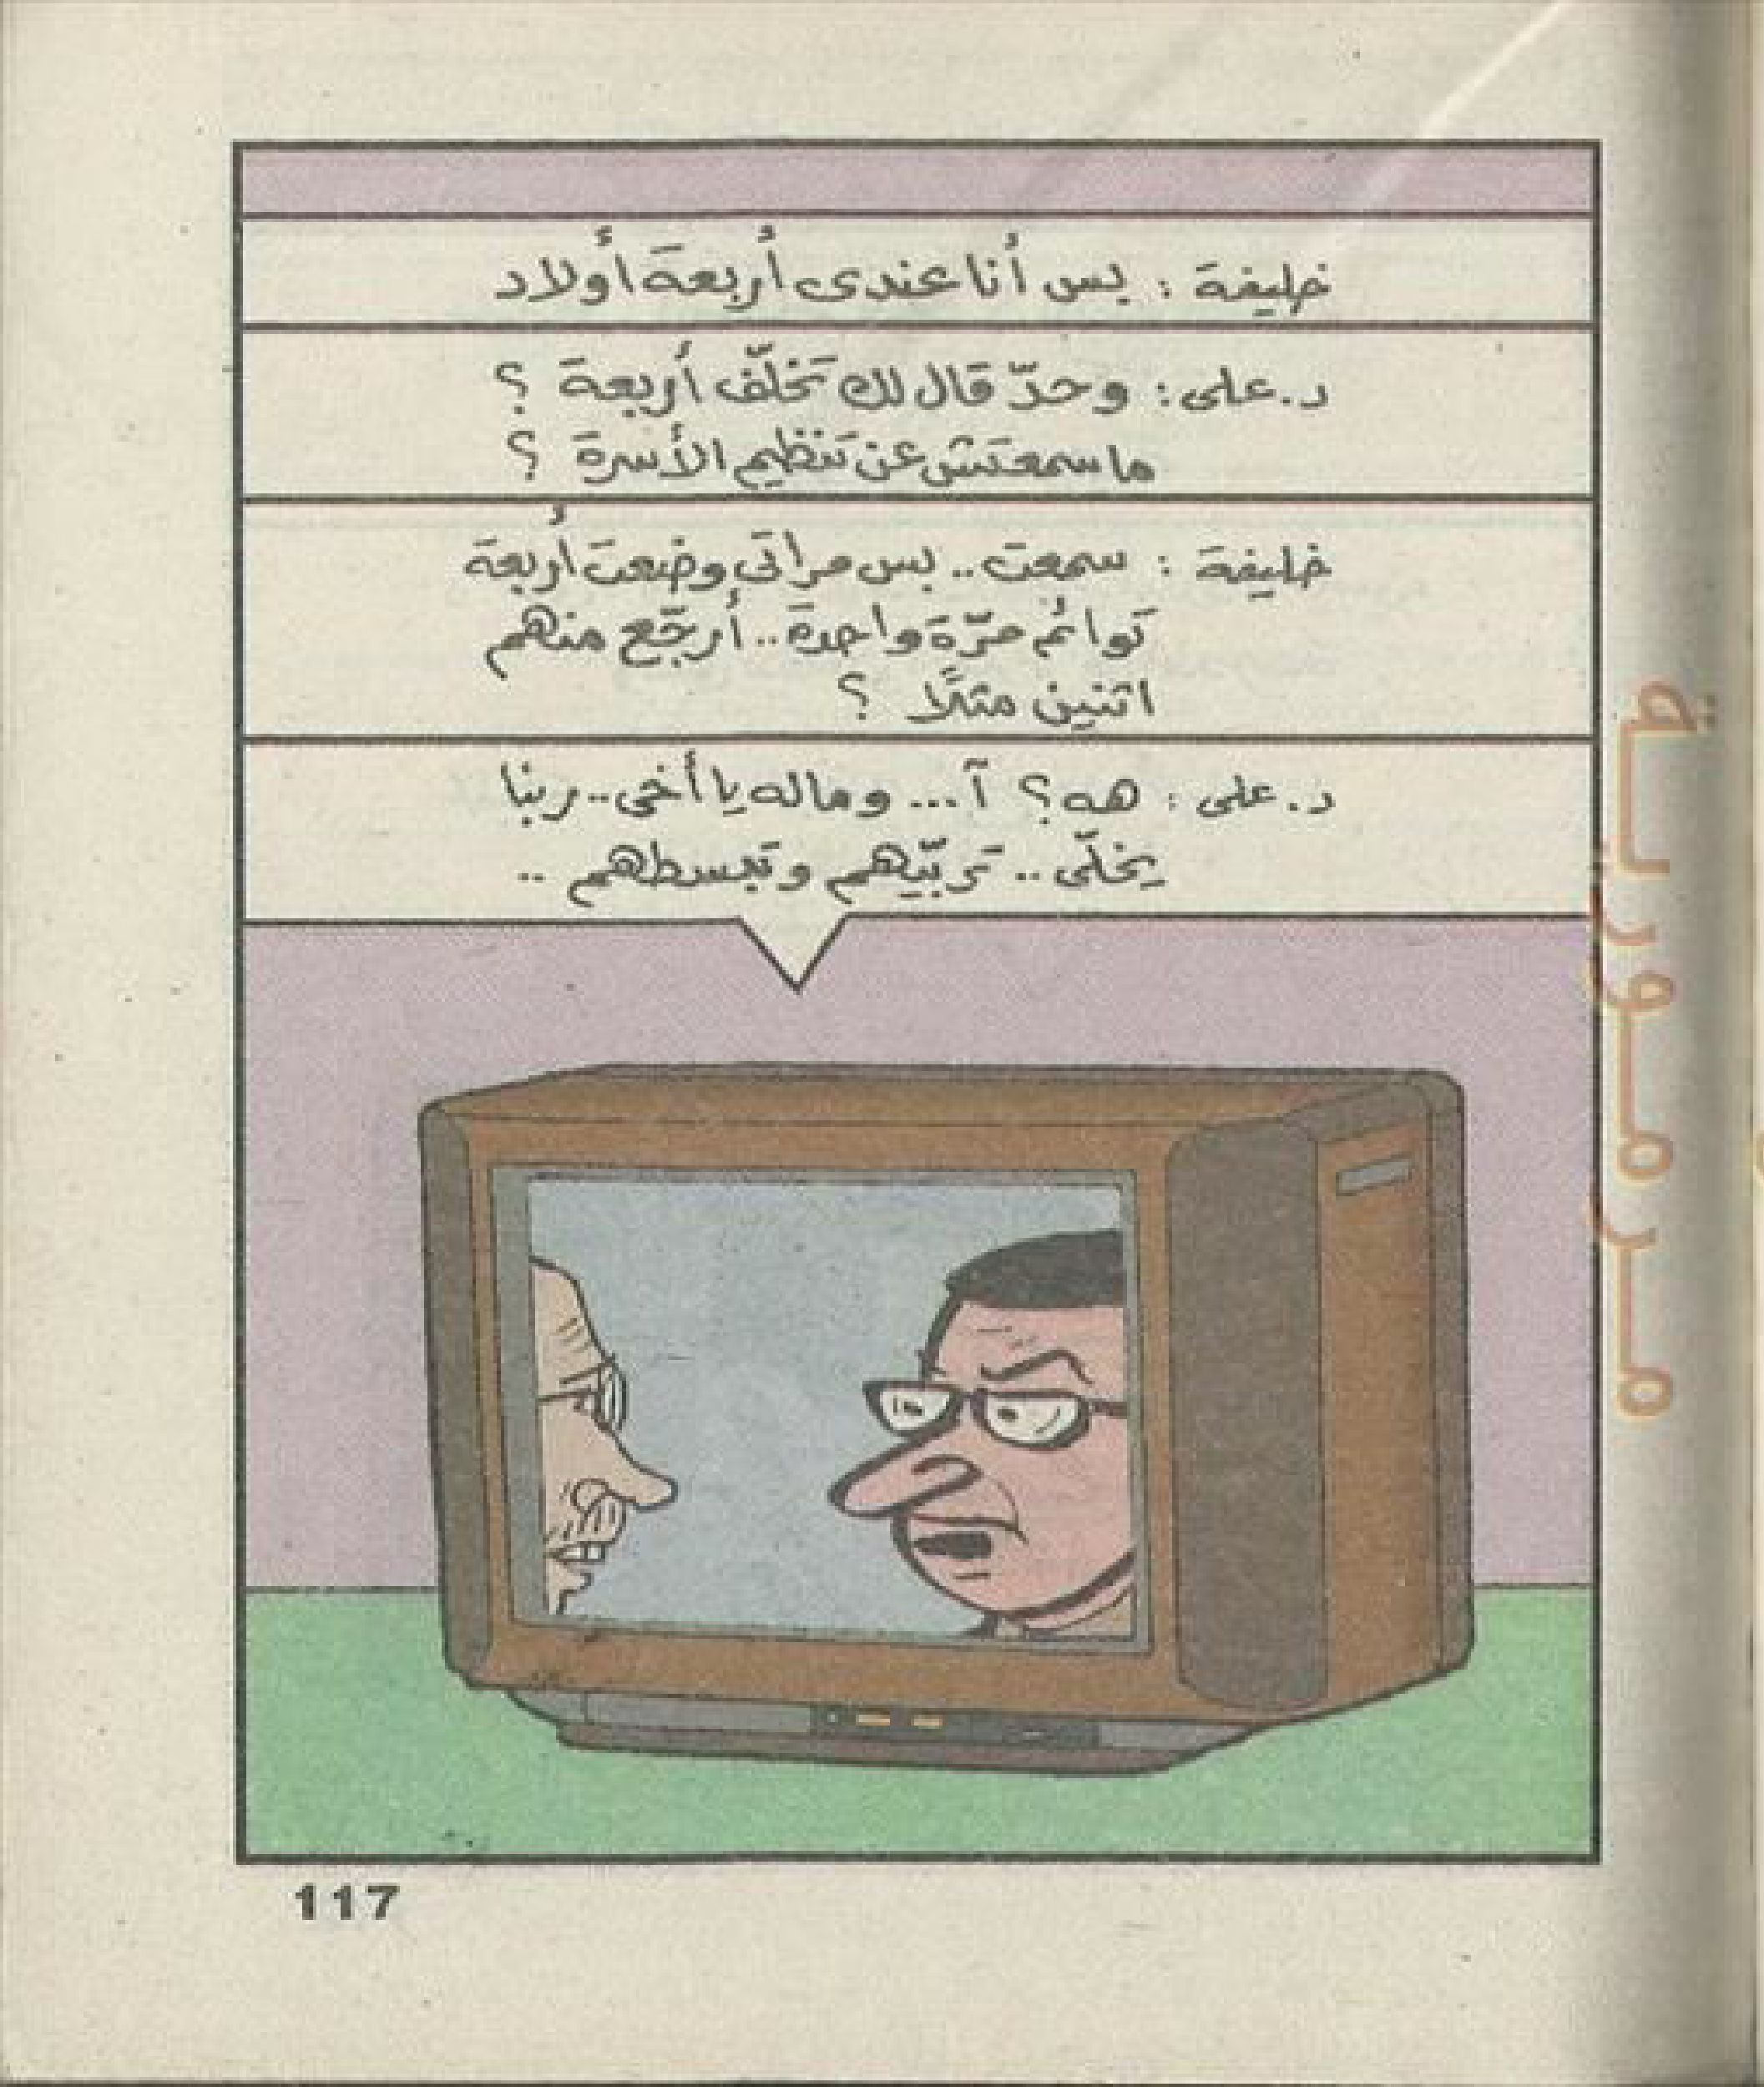 خليفة : بس أنا عندى أربعة أولاد
د. على : وحدّ قال لك تخلّف أربعة ؟
ما سمعتش عن تنظيم الأسرة ؟
خليفة : سمعت .. بس مراتى وضعت أربعة
توائم مرّة واحدة .. أرجّع منهم
اتنين مثلًا ؟
د. على : هه ؟ آ ... وماله يا أخى .. ربنا
يخلّى .. تربّيهم وتبسطهم ..
مرمورية
117